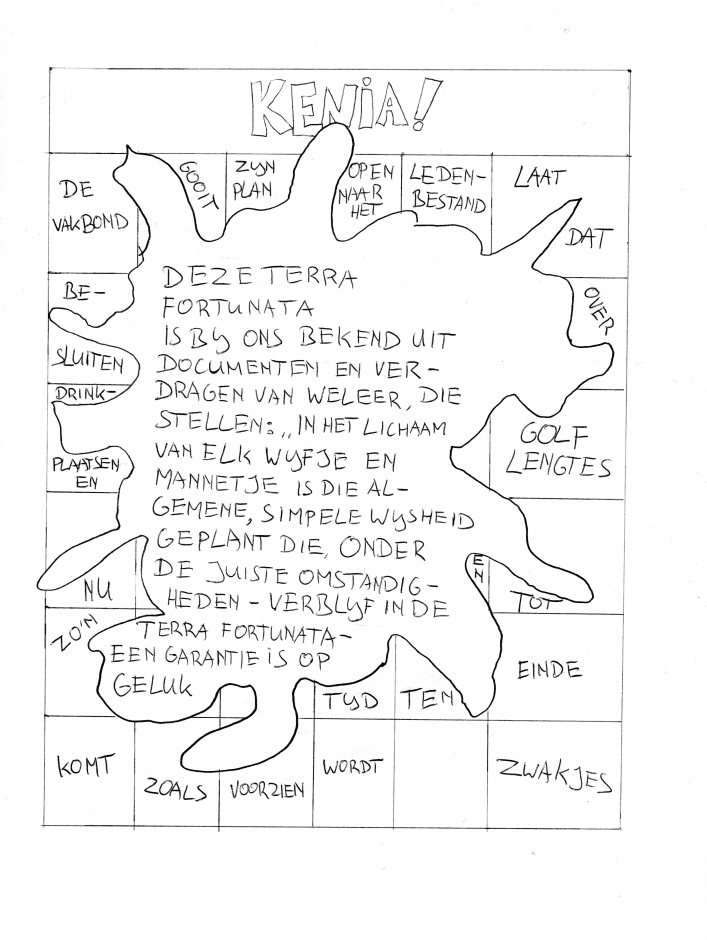 KENIA!
DE
VAKBOND
GOOIT
ZIJN
PLAN
OPEN
NAAR
HET
LEDEN-
BESTAND
LAAT
DAT
OVER
GOLF
LENGTES
TOT
EINDE
ZWAKJES
BE-
SLUITEN
DRINK-
PLAATSEN
EN
NU
ZO'N
KOMT
ZOALS
VOORZIEN
WORDT
TIJD
TEN
EN
DEZE TERRA
FORTUNATA
IS BIJ ONS BEKEND UIT
DOCUMENTEN EN VER-
DRAGEN VAN WELEER, DIE
STELLEN: „IN HET LICHAAM
VAN ELK WIJFJE EN
MANNETJE IS DIE AL-
GEMENE, SIMPELE WIJSHEID
GEPLANT DIE, ONDER
DE JUISTE OMSTANDIG-
HEDEN - VERBLIJF IN DE
TERRA FORTUNATA-
EEN GARANTIE IS OP
GELUK